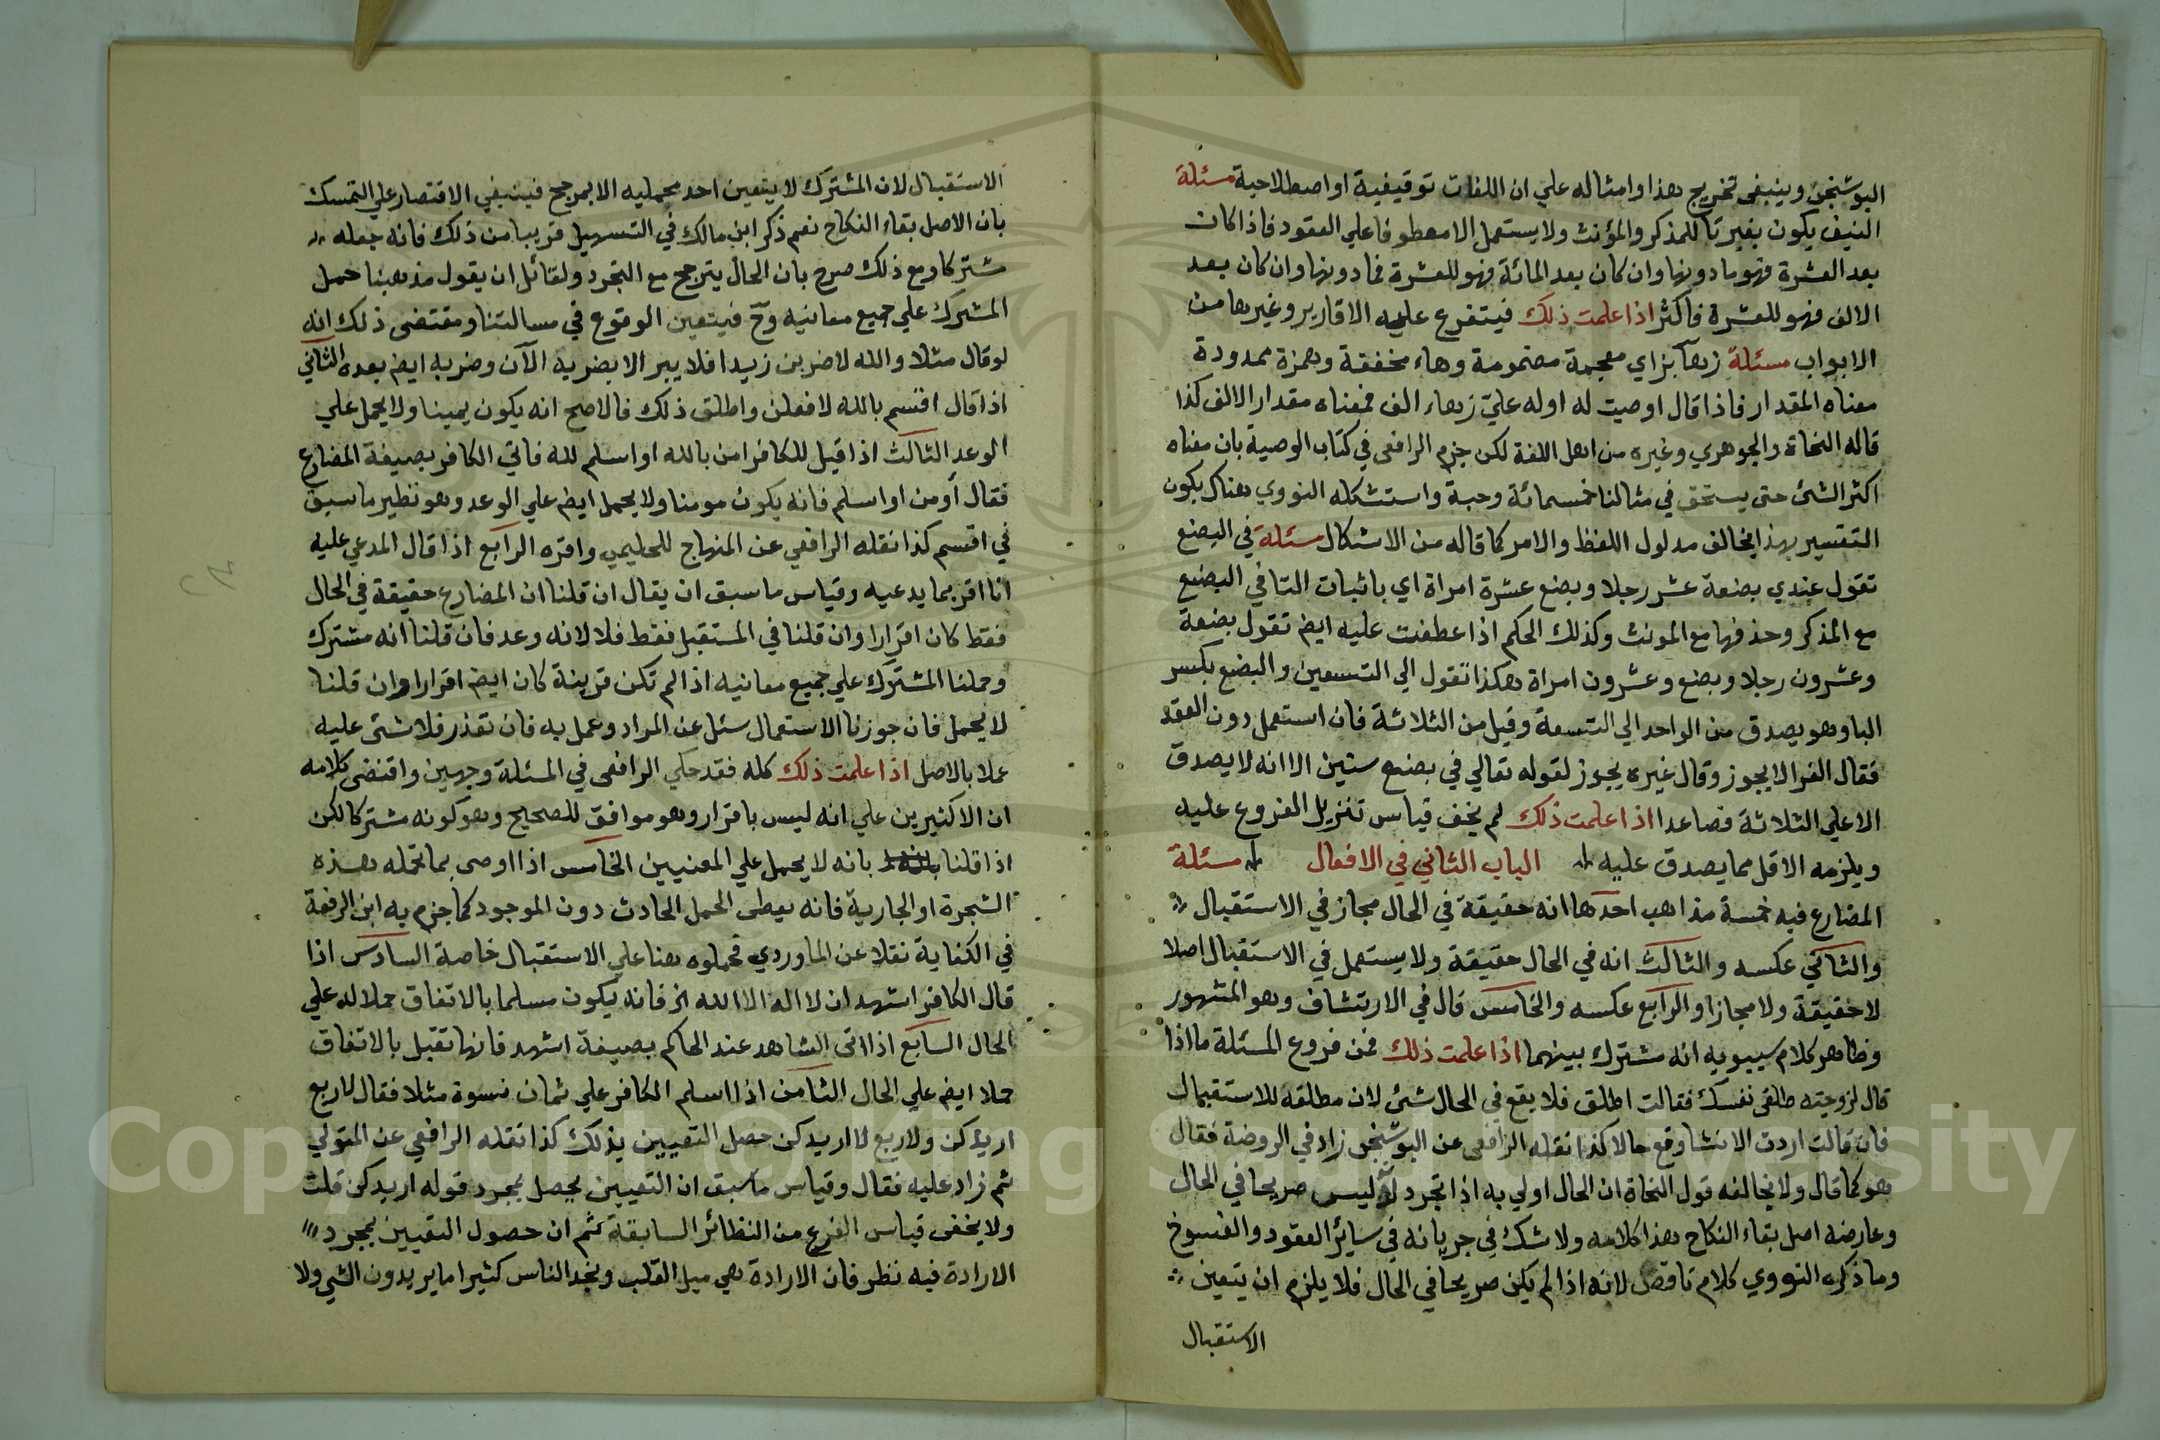 البوشنجي وينبغي تخريج هذا وامثاله علي ان اللغات توقيفية او اصطلاحية مسئلة
النيف يكون بغير تا للمذكر والمؤنث ولا يستعمل الا معطوفا علي العقود فاذا كان
بعد العشرة فهو ما دونها وان كان بعد المائة فهو للعشرة فما دونها وان كان بعد
الالف فهو للعشرة فاكثر اذا علمت ذلك فيتفرع عليه الاقارير وغيرها من
الابواب مسئلة زهآ بزاي معجمة مضمومة وهاء مخففة وهمزة ممدودة
معناه المقدار فاذا قال اوصيت له او له عليّ زهاء الف فمعناه مقدار الالف كذا
قاله النحاة والجوهري وغيره من اهل اللغة لكن جزم الرافعي في كتاب الوصية بان معناه
اكثر الشئ حتى يستحق في مثالنا خمسمائة وحبة واستشكله النووي هناك بكون
التفسير بهذا يخالف مدلول اللفظ والامر كما قاله من الاشكال مسئلة في البضع
تقول عندي بضعة عشر رجلا وبضع عشرة امراة اي باثبات التا في البضع
مع المذكر وحذفها مع المونث وكذلك الحكم اذا عطفت عليه ايضا تقول بضعة
وعشرون رجلا وبضع وعشرون امراة هكذا تقول الي التسعين والبضع بكسر
البا وهو يصدق من الواحد الي التسعة وقيل من الثلاثة فان استعمل دون العقد
فقال الفرا لا يجوز وقال غيره يجوز لقوله تعالي في بضع سنين الا انه لا يصدق
الا علي الثلاثة فصاعدا اذا علمت ذلك لم يخف قياس تنزيل الفروع عليه
ويلزمه الاقل مما يصدق عليه الباب الثاني في الافعال مسئلة
المضارع فيه خمسة مذاهب احدها انه حقيقة في الحال مجاز في الاستقبال
والثاني عكسه والثالث انه في الحال حقيقة ولا يستعمل في الاستقبال اصلا
لا حقيقة ولا مجازا والرابع عكسه والخامس قال في الارتشاف وهو المشهور
وظاهر كلام سيبويه انه مشترك بينهما اذا علمت ذلك فمن فروع المسئلة ما اذا
قال لزوجته طلقي نفسك فقالت اطلق فلا يقع في الحال شئ لان مطلقه للاستقبال
فان قالت اردت الانشا وقع حالا كذا نقله الرافعي عن البوشنجي زاد في الروضة فقال
هو كما قال ولا يخالفه قول النحاة ان الحال اولي به اذا تجرد لانه ليس صريحا في الحال
وعارضه اصل بقاء النكاح هذا كلامه ولا شك في جريانه في سائر العقود والفسوخ
وما ذكره النووي كلام ناقص لانه اذا لم يكن صريحا في الحال فلا يلزم ان يتعين
الاستقبال
الاستقبال لان المشترك لا يتعين احد محمليه الا بمرجح فينبغي الاقتصار علي التمسك
بان الاصل بقاء النكاح نعم ذكر ابن مالك في التسهيل قريبا من ذلك فانه جعله
مشتركا ومع ذلك صرح بان الحال يترجح مع التجرد ولقائل ان يقول مذهبنا حمل
المشترك علي جميع معانيه وح فيتعين الوقوع في مسالتنا ومقتضى ذلك انه
لو قال مثلا والله لاضربن زيدا فلا يبر الا بضربه الآن وضربه ايضا بعده الثاني
اذا قال اقسم بالله لافعلن واطلق ذلك فالاصح انه يكون يمينا ولا يحمل علي
الوعد الثالث اذا قيل للكافر امن بالله او اسلم لله فاتي الكافر بصيغة المضارع
فقال أومن او اسلم فانه يكون مومنا ولا يحمل ايضا علي الوعد وهو نظير ما سبق
في اقسم كذا نقله الرافعي عن المنهاج للحليمي واقره الرابع اذا قال المدعي عليه
انا اقر بما يدعيه وقياس ما سبق ان يقال ان قلنا ان المضارع حقيقة في الحال
فقط كان اقرارا وان قلنا في المستقبل فقط فلا لانه وعد فان قلنا انه مشترك
وحملنا المشترك علي جميع معانيه اذا لم تكن قرينة كان ايضا اقرارا وان قلنا
لا يحمل فان جوزنا الاستعمال سئل عن المراد وعمل به فان تعذر فلا شئ عليه
عملا بالاصل اذا علمت ذلك كله فقد حكي الرافعي في المسئلة وجهين واقتضى كلامه
ان الاكثرين علي انه ليس باقرار وهو موافق للصحيح وهو كونه مشتركا لكن
اذا قلنا بانه لا يحمل علي المعنيين الخامس اذا اوصى بما تحمله هذه
الشجرة او الجارية فانه يعطى الحمل الحادث دون الموجود كما جزم به ابن الرفعة
في الكفاية نقلا عن الماوردي فحملوه هنا علي الاستقبال خاصة السادس اذا
قال الكافر اشهد ان لا اله الا الله الخ فانه يكون مسلما بالاتفاق حملا له علي
الحال السابع اذا اتى الشاهد عند الحاكم بصيغة اشهد فانها تقبل بالاتفاق
حملا ايضا علي الحال الثامن اذا اسلم الكافر علي ثمان نسوة مثلا فقال لاربع
اريدكن ولاربع لا اريدكن حصل التعيين بذلك كذا نقله الرافعي عن المتولي
ثم زاد عليه فقال وقياس ما سبق ان التعيين يحصل بمجرد قوله اريدكن قلت
ولا يخفى قياس الفرع من النظائر السابقة ثم ان حصول التعيين بمجرد
الارادة فيه نظر فان الارادة هي ميل القلب ونجد الناس كثيرا ما يريدون الشي ولا
Copyright © King Saud University